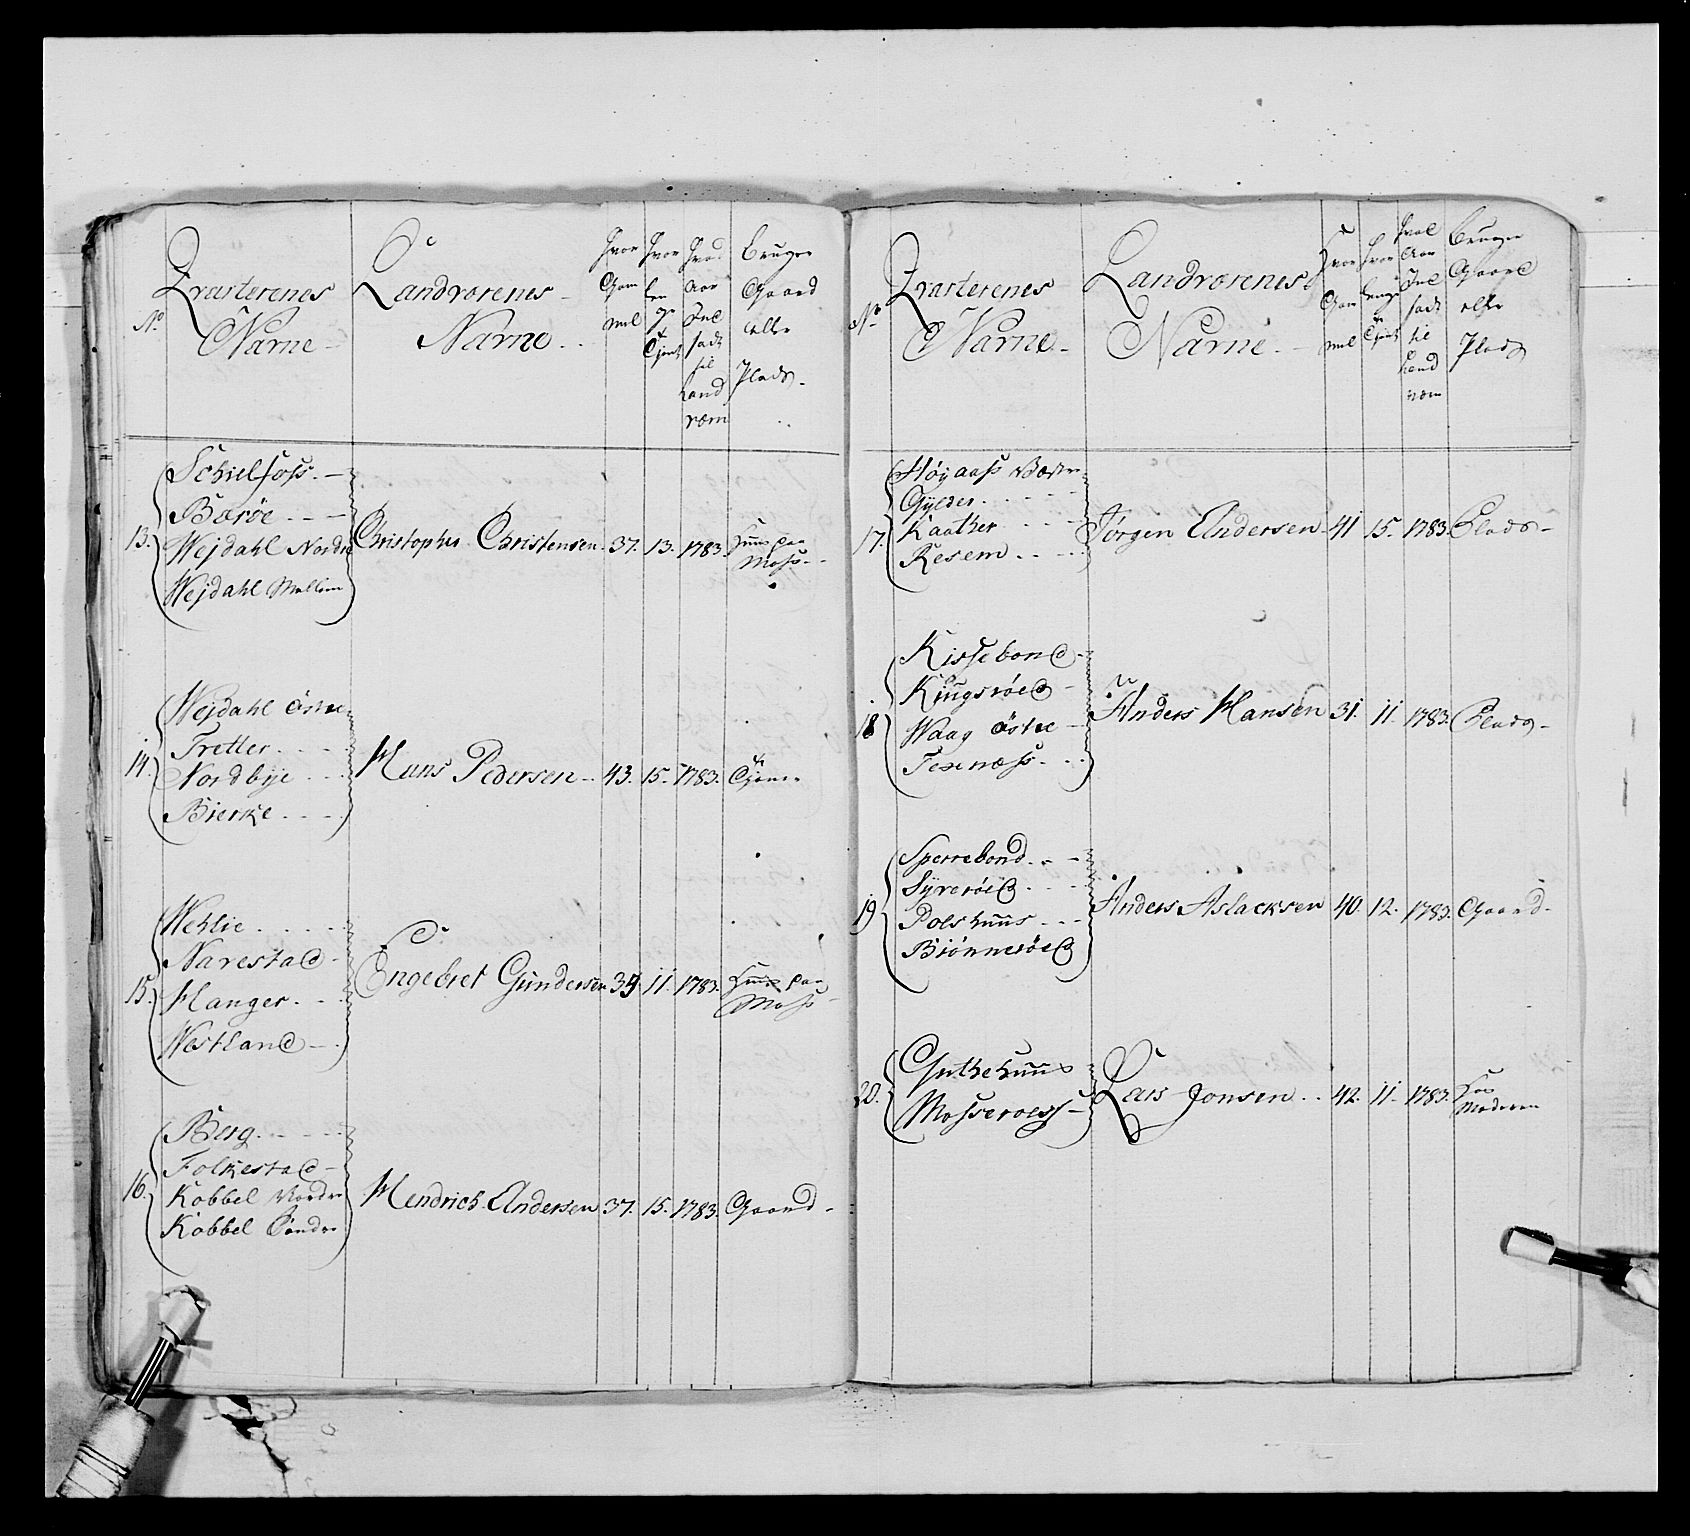 No
Qvarterenes
Nafne
Landværenes
Nafne
Hvor
Gam
mel
Hvor
len
ge
Tjent
Hvad
Aar
Ind
sadt
til
Land
værn
Bruger
Gaard
eller
Plads
13. Schielfoss
Barøe
Wejdahl Nordre
Wejdahl Mellem
Christopher Christensen 37. 13. 1783. Huus paa
Moss
14. Wejdahl Østre
Tretter
Nordbye
Bierke
Hans Pedersen 43. 15. 1783.
15. Wehlie
Narestad
Hanger
Westland
Engebret Gundersen 39. 11. 1783. Huus paa
Moss
16. Berg
Folkestad
Kobbel Nordre
Kobbel Søndre
Hendrich Andersen 37. 15. 1783. Gaard
No
Qvarterenes
Nafne
Landværenes
Nafne
Hvor
Gam
mel
Hvor
lenge
Tjent
Hvad
Aar
Ind
sadt
til
Land
værn
Bruger
Gaard
eller
Plads
17. Højaass Væstre
Gylder
Kaather
Resem
Jørgen Andersen 41 15. 1783. Plads
18 Kissebond
Kjngsrøed
Waag Østre
Texnæss
Anders Hansen 31. 11. 1783. Plads
19 Sperrebond
Syverøed
Polshuus
Biønnerøed
Anders Aslacksen 40. 12. 1783. Gaard
20. Guthehuus
Mosseroess
Lars Jonsen 42. 11. 1783. Hos
Moderen